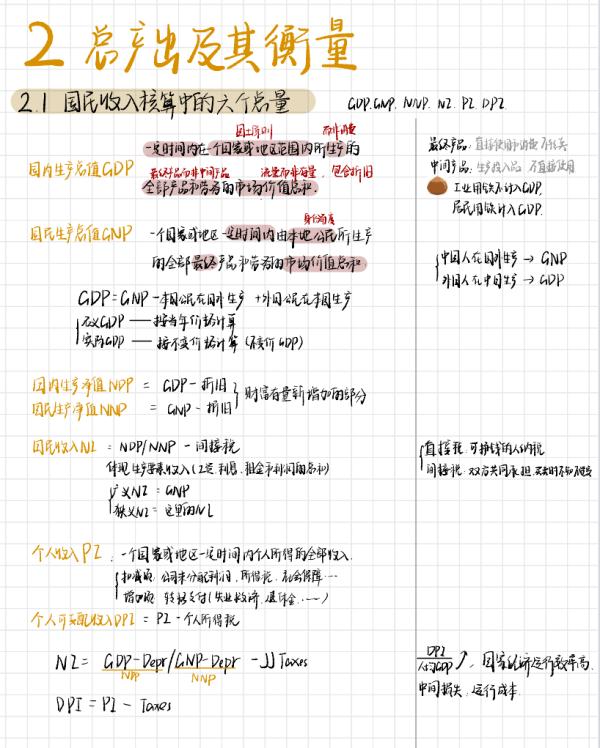 2 总产出及其衡量
2.1 国民收入核算中的六个总量
GDP. GNP. NNP. NI. PI. DPI.
国土原则 而非消费
国内生产总值GDP
一定时间内在一个国家或地区范围内所生产的
最终产品而非中间产品 流量而非存量, 包含折旧
全部产品和劳务的市场价值总和
最终产品: 直接使用和消费 不转卖
中间产品: 生产投入品 不直接使用
工业用铁不计入GDP.
居民用铁计入GDP.
身份角度
国民生产总值GNP 一个国家或地区一定时间内由本地公民所生产
的全部最终产品和劳务的市场价值总和
中国人在国外生产 → GNP
外国人在中国生产 → GDP
GDP = GNP - 本国公民在国外生产 + 外国公民在本国生产
名义GDP —— 按当年价格计算
实际GDP —— 按不变价格计算 (不变价GDP)
国内生产净值NDP = GDP - 折旧
国民生产净值NNP = GNP - 折旧
财富存量新增加的部分
国民收入NI = NDP/NNP - 间接税
体现生产要素收入 (工资, 利息, 租金和利润的总和)
广义NI = GNP
狭义NI = 这里的NI
直接税: 可挣钱的人纳税
间接税: 双方共同承担.
个人收入PI : 一个国家或地区一定时间内个人所得的全部收入.
扣减项: 公司未分配利润, 所得税, 社会保障…
增加项: 转移支付 (失业救济, 退休金, ……)
个人可支配收入DPI = PI - 个人所得税
NI = GDP-Depr/GNP-Depr - JJ Taxes
NDP NNP
DPI = PI - Taxes
DPI
人均GDP ↗, 国家经济运行效率高.
中间损失, 运行成本.